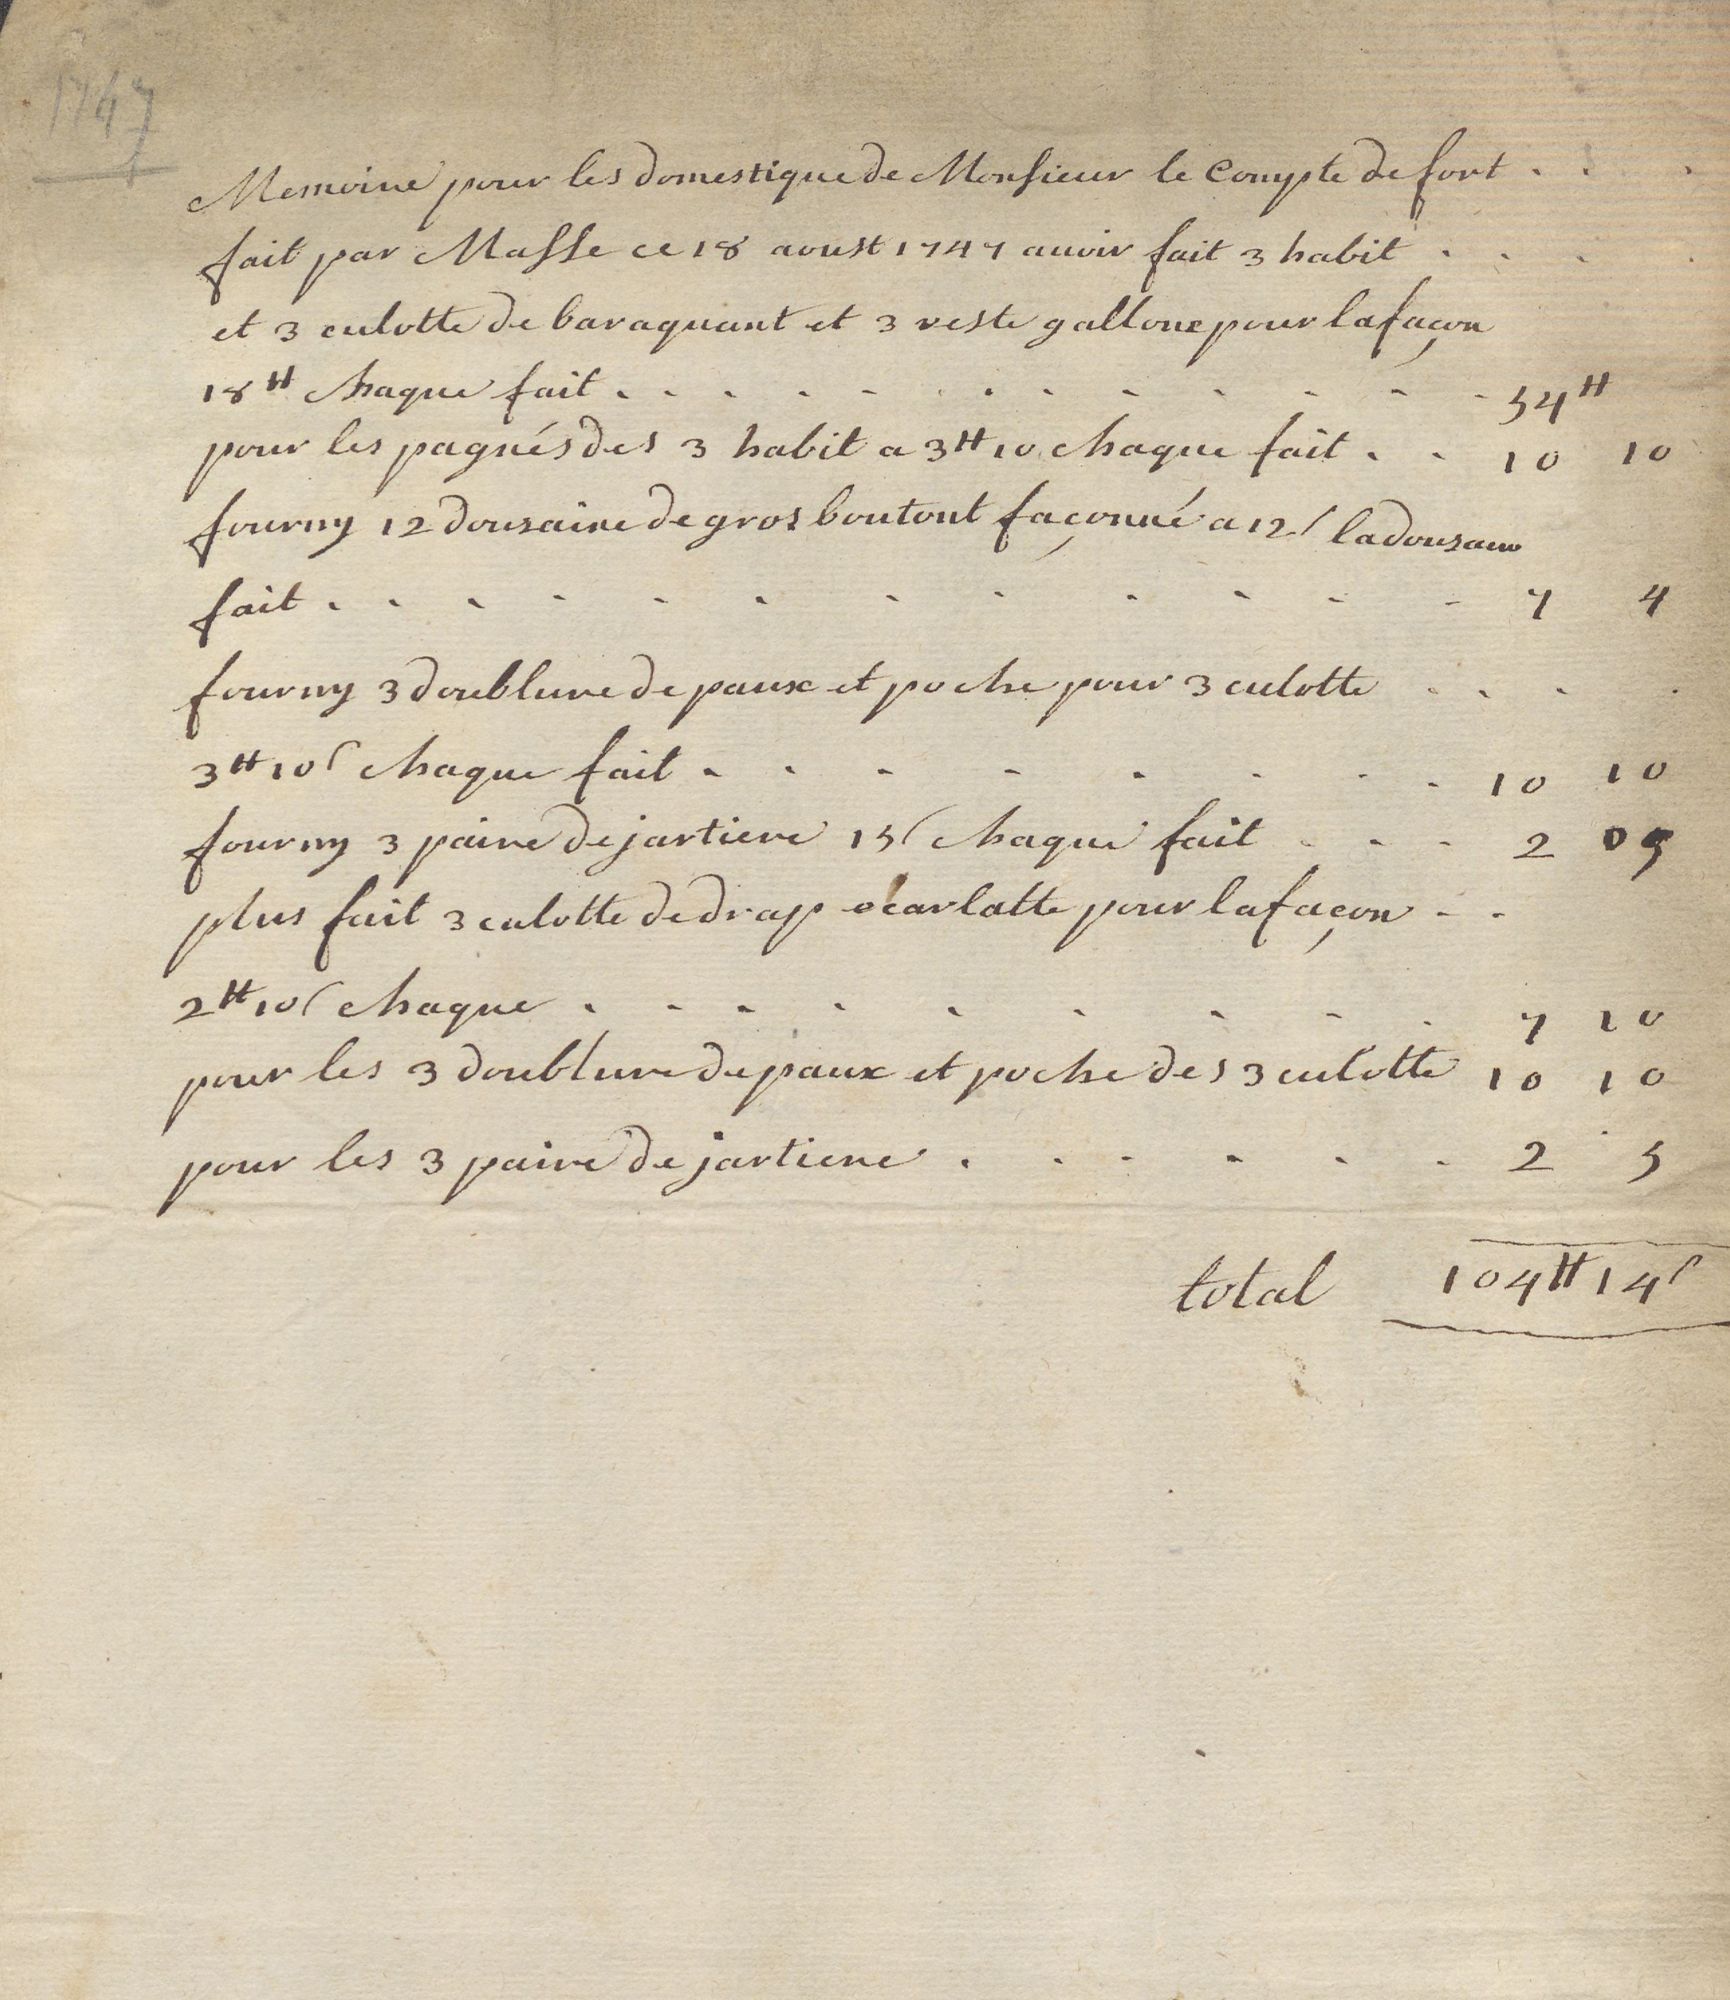 1747
Memoire pour les domestique de Monsieur le Compte de fort . . .
fait par Masse ce 18 aoust 1747 auvir fait 3 habit . . . .
et 3 culotte de baraquant et 3 veste gallone pour la façon
18 ₶ chaque fait . . . . . . . . . . . . 54 ₶
pour les pagnés des 3 habit a 3 ₶ 10 chaque fait . . 10 10
fourny 12 dousaine de gros boutont façonné a 12 s la dousaine
fait . . . . . . . . . . . . 7 4
fourny 3 doublure de paux et poche pour 3 culotte . . . .
3 ₶ 10 s chaque fait . . . . . . . . 10 10
fourny 3 paire de jartiere 15 s chaque fait . . . 2 05
plus fait 3 culotte de drap ecarlatte pour la façon . .
2 ₶ 10 s chaque . . . . . . . . . 7 10
pour les 3 doublure de paux et poche des 3 culotte 10 10
pour les 3 paire de jartiere . . . . . . 2 5
total 104 ₶ 14 s